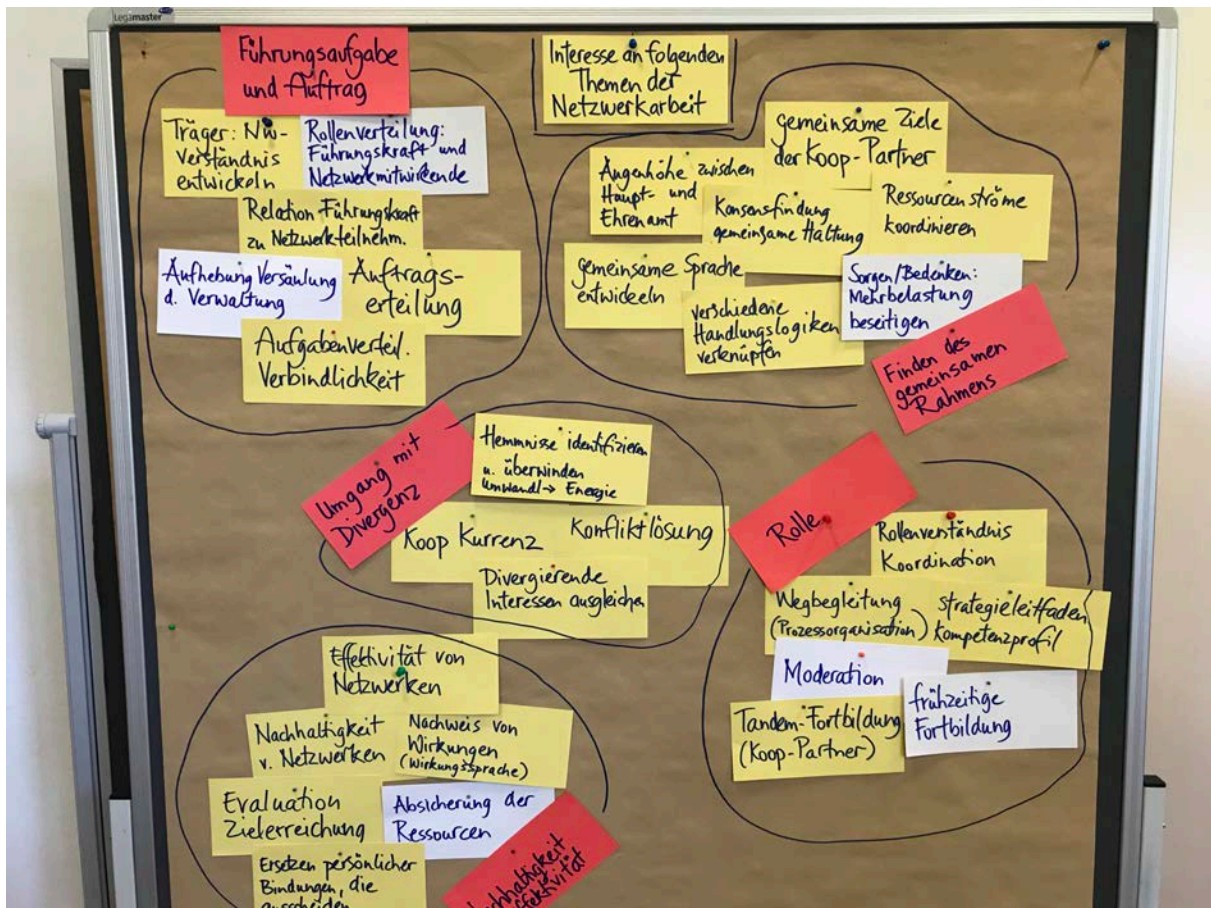 Legamaster
Führungsaufgabe
und Auftrag
Träger: NW-
verständnis
entwickeln
Rollenverteilung:
Führungskraft und
Netzwerkmitwirkende
Relation Führungskraft
zu Netzwerkteilnehm.
Aufhebung Versäulung
d. Verwaltung
Auftrags-
erteilung
Aufgabenverteil.
Verbindlichkeit
Interesse an folgenden
Themen der
Netzwerkarbeit
gemeinsame Ziele
der Koop-Partner
Augenhöhe zwischen
Haupt- und
Ehrenamt
Konsensfindung
gemeinsame Haltung
Ressourcenströme
koordinieren
gemeinsame Sprache
entwickeln
verschiedene
Handlungslogiken
verknüpfen
Sorgen/Bedenken:
Mehrbelastung
beseitigen
Finden des
gemeinsamen
Rahmens
Umgang mit
Divergenz
Hemmnisse identifizieren
u. überwinden
Umwandl→ Energie
Koop Kurrenz
Konfliktlösung
Divergierende
Interessen ausgleichen
Rolle
Rollenverständnis
Koordination
Wegbegleitung
(Prozessorganisation)
Strategieleitfaden
Kompetenzprofil
Moderation
frühzeitige
Fortbildung
Tandem-Fortbildung
(Koop-Partner)
Effektivität von
Netzwerken
Nachhaltigkeit
v. Netzwerken
Nachweis von
Wirkungen
(Wirkungssprache)
Evaluation
Zielerreichung
Absicherung der
Ressourcen
Ersetzen persönlicher
Bindungen, die
ausscheiden
Nachhaltigkeit
Effektivität